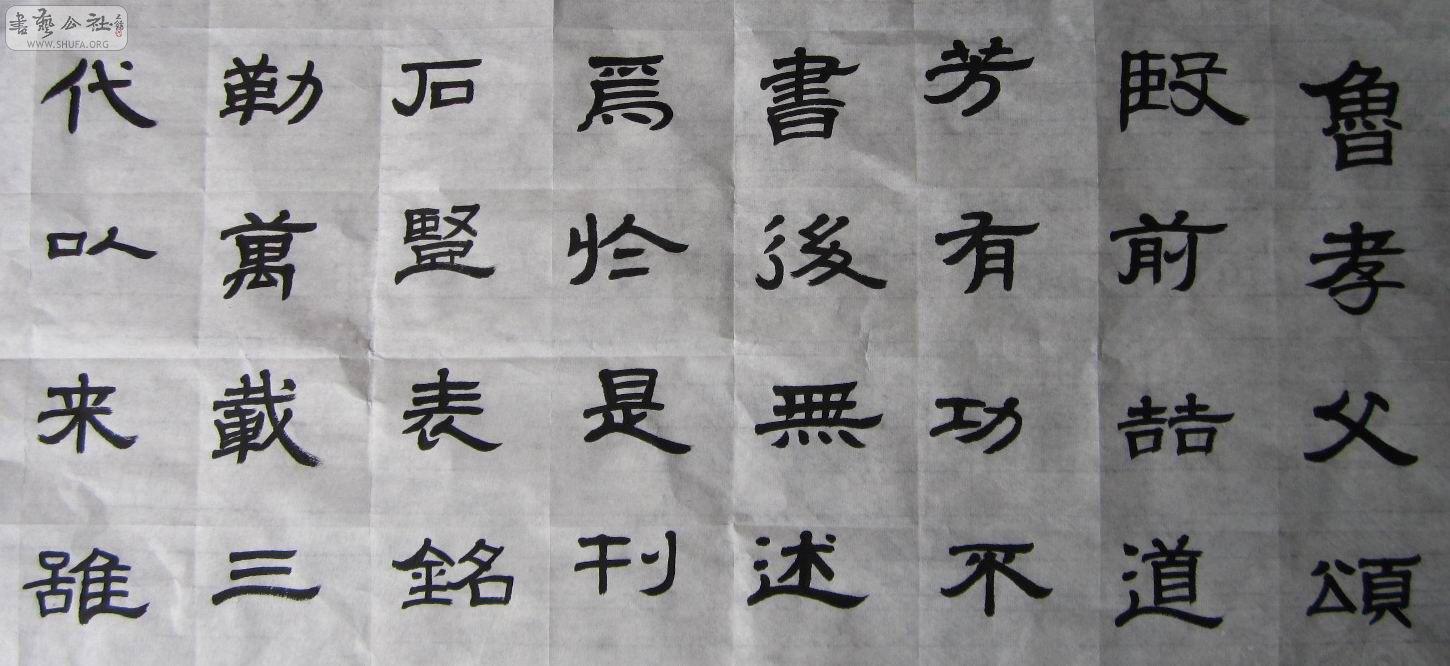 魯孝父頌
殷前喆道
芳有功不
書後無述
焉於是刊
石豎表銘
勒萬載三
代以来雖
書藝公社
WWW.SHUFA.ORG